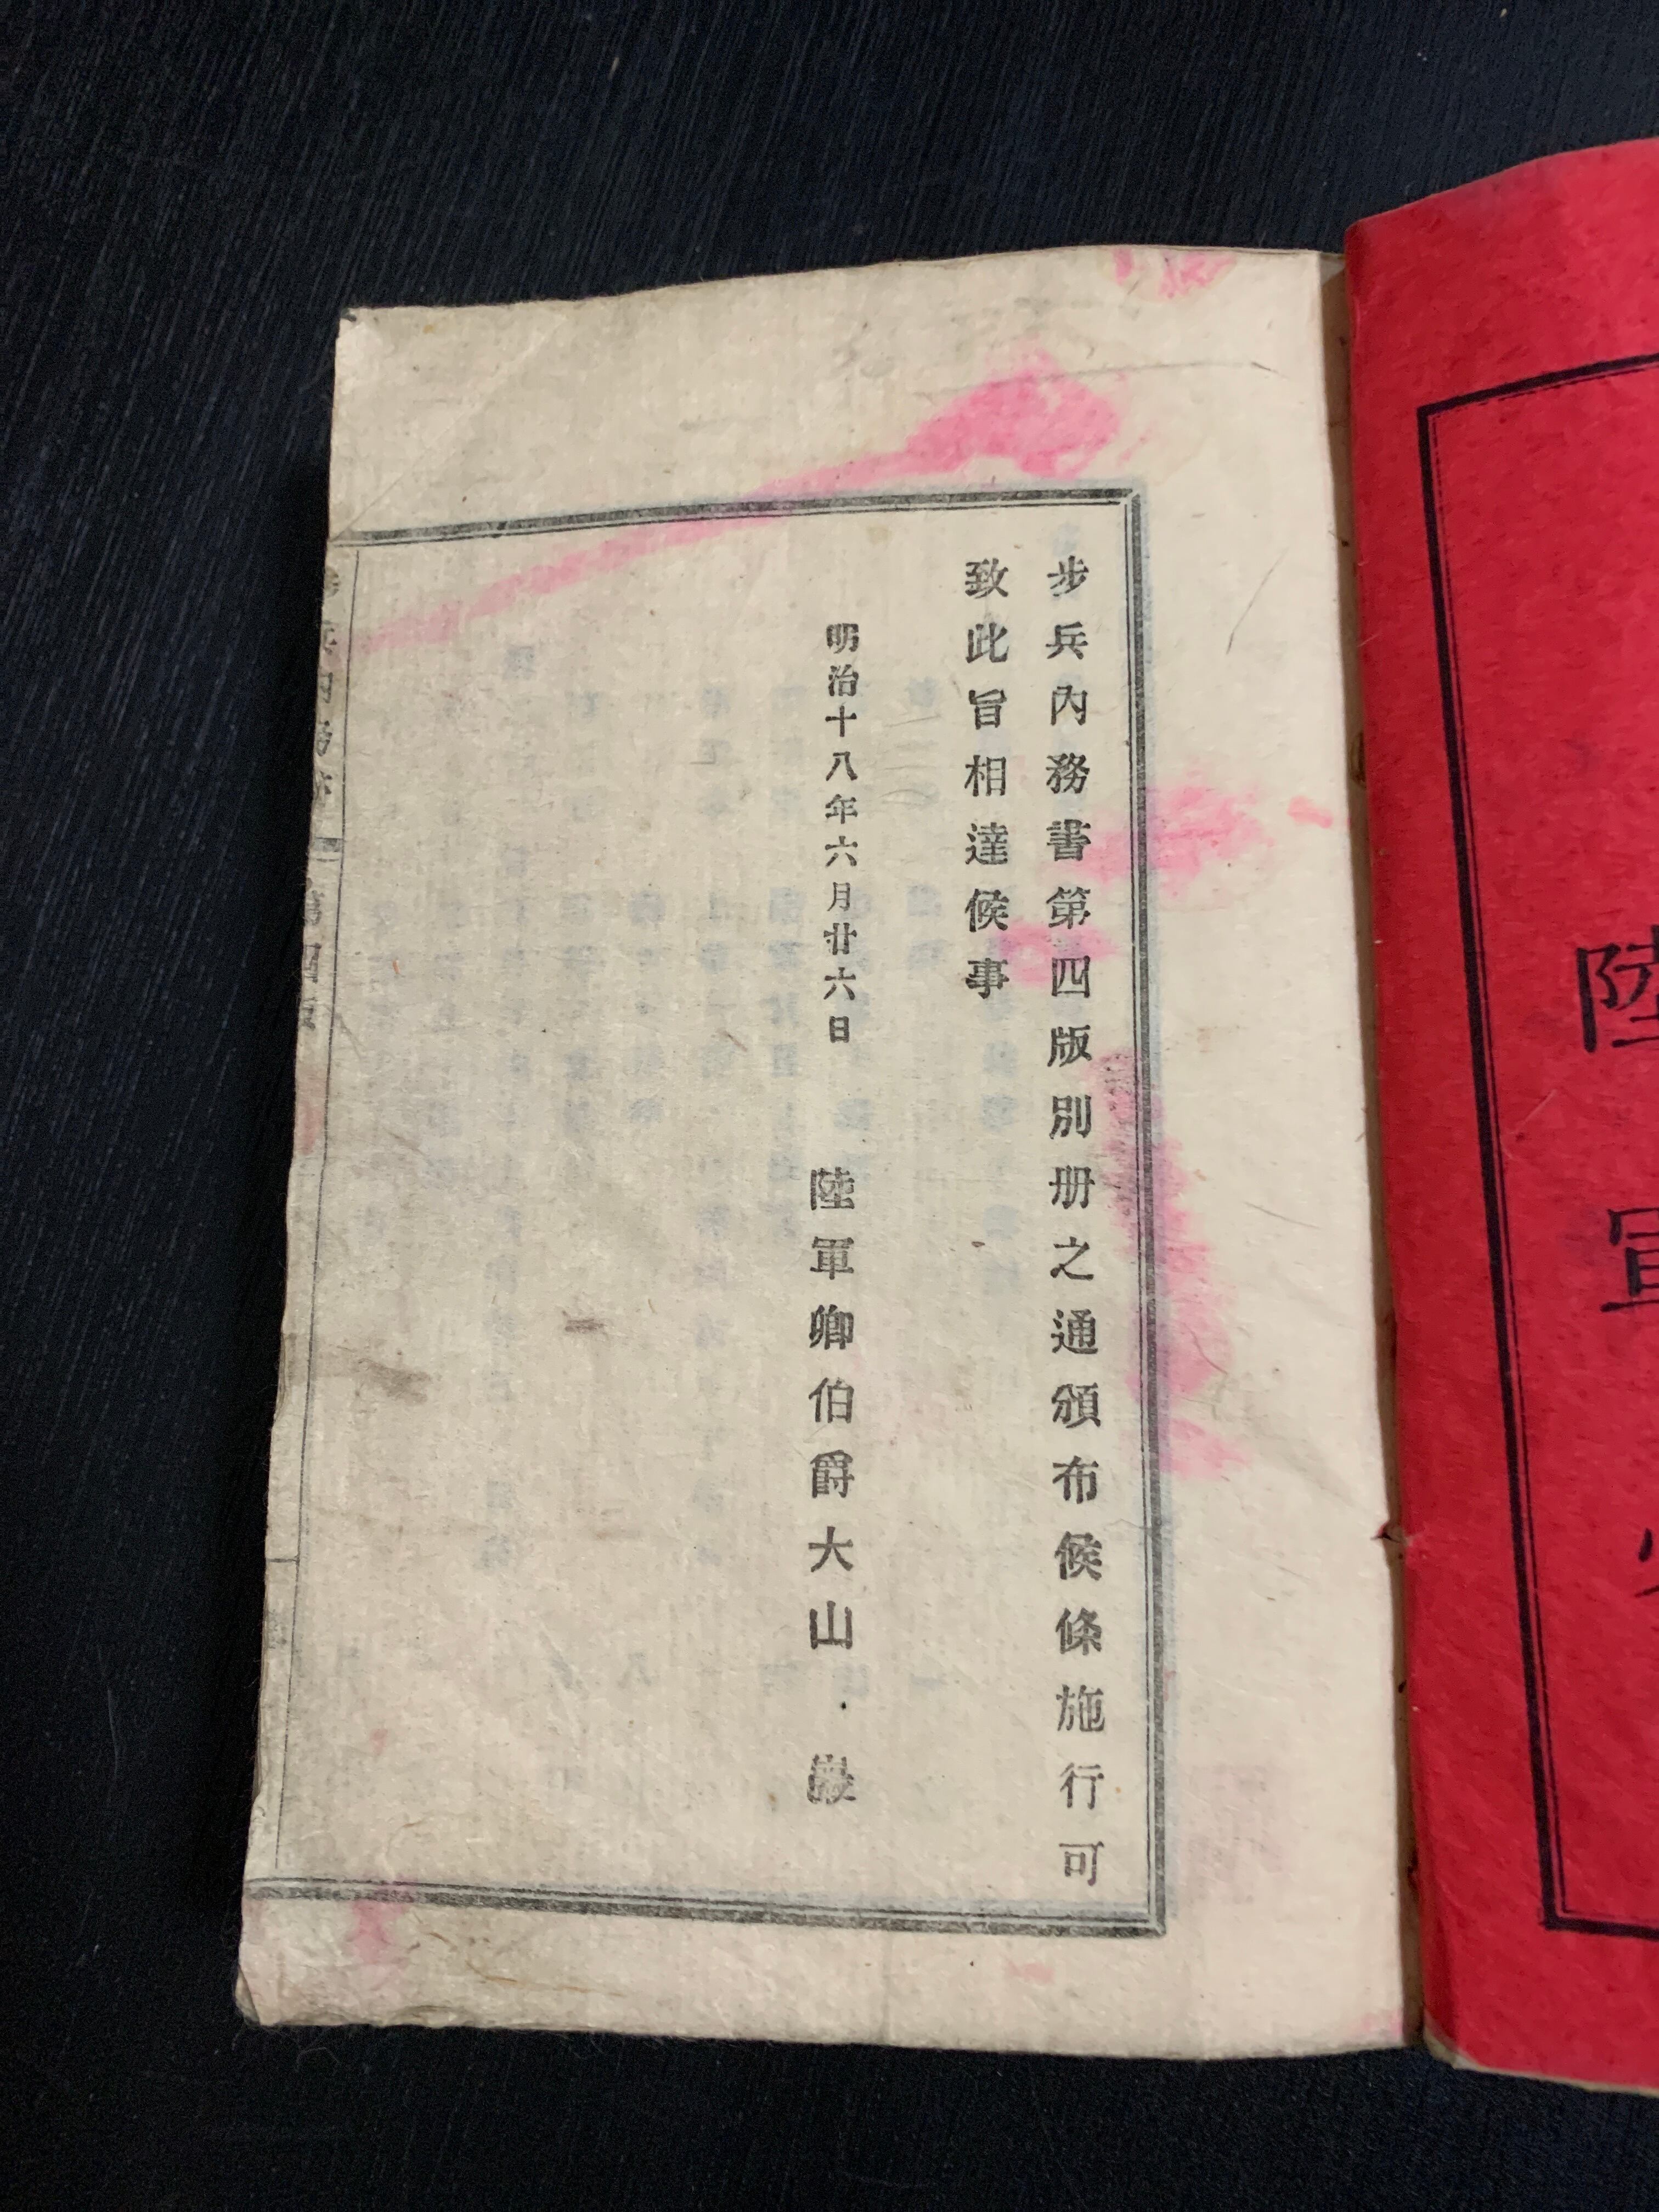 陸軍
步兵內務書第四版別册之通頒布候條施行可
致此旨相達候事
明治十八年六月廿六日
陸軍卿伯爵大山巖
第四版